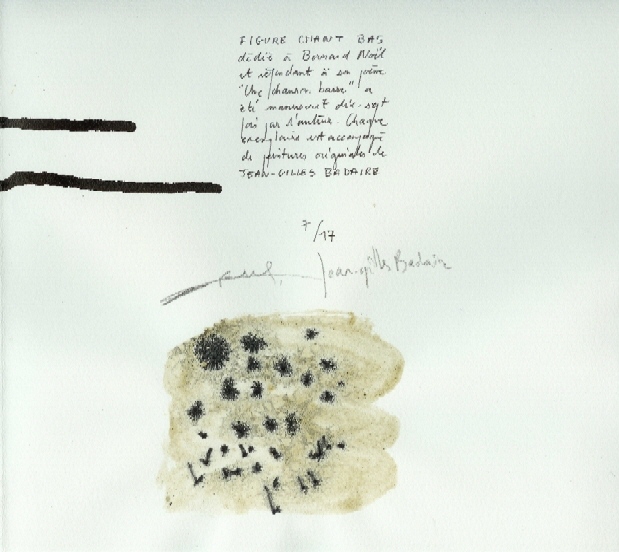 FIGURE CHANT BAS
dédié à Bernard Noël
et répondant à son poème
"Une chanson basse" a
été manuscrit dix-sept
fois par l'auteur. Chaque
exemplaire est accompagné
de peintures originales de
JEAN-GILLES BADAIRE
7/17
Jean-gilles Badaire